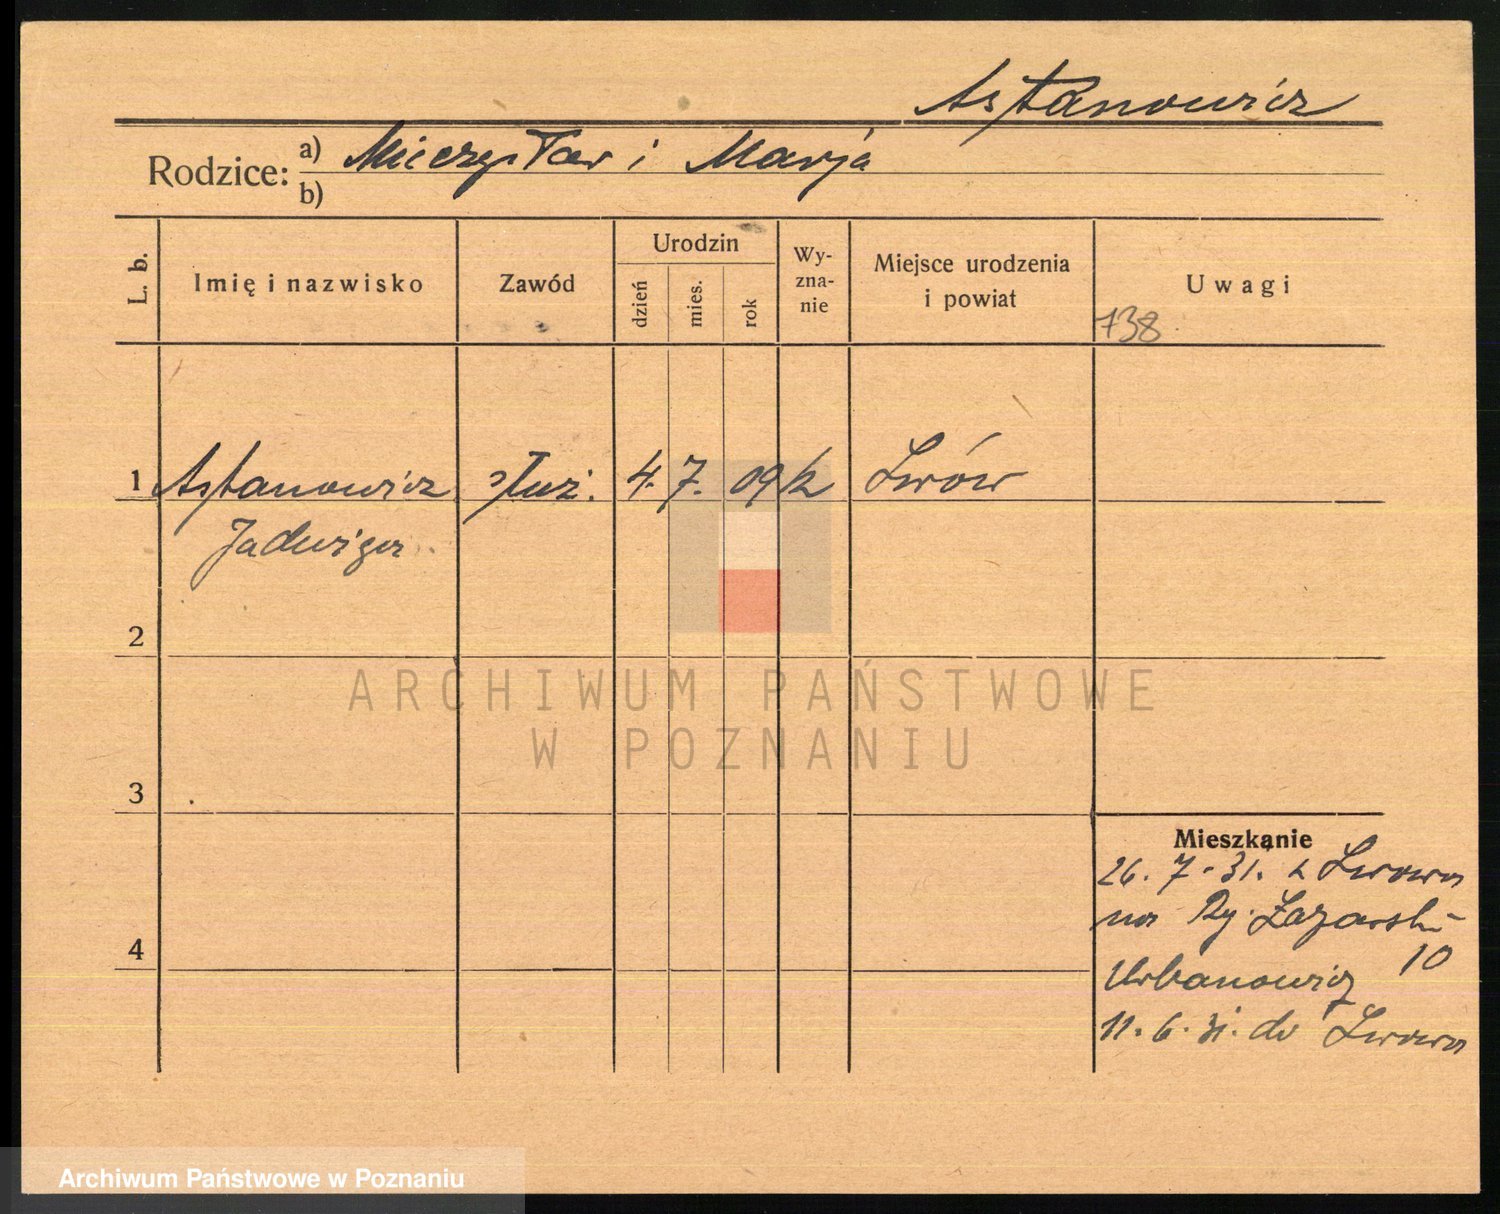 Astanowicz
Rodzice: a) Mieczysław i Marja
b)
L. b. Imię i nazwisko Zawód Urodzin dzień mies. rok Wyznanie Miejsce urodzenia i powiat Uwagi
738
1 Astanowicz służ. 4. 7. 09 Lwów
Jadwiga
2
ARCHIWUM PAŃSTWOWE
W POZNANIU
3
Mieszkanie
26. 7. 31. z Lwowa
na Ry. Łazarski
4
10
Urbanowicz
11. 6. 31. do Lwowa
Archiwum Państwowe w Poznaniu